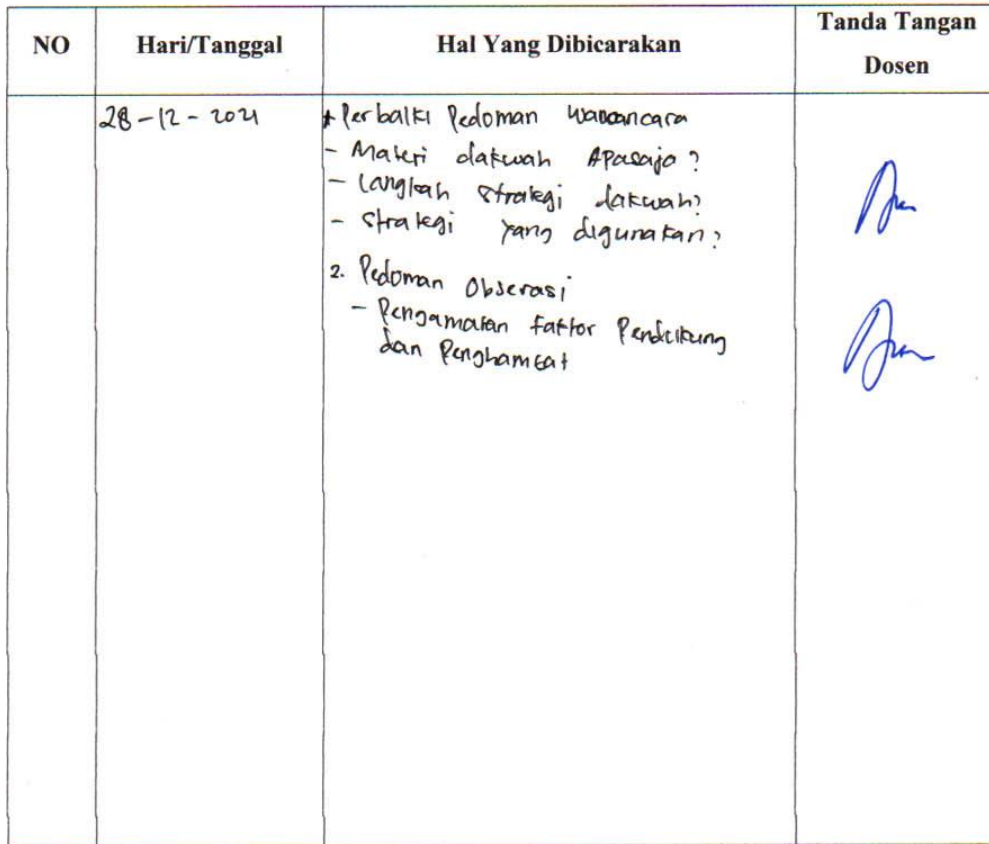 NO
Hari/Tanggal
Hal Yang Dibicarakan
Tanda Tangan
Dosen
28-12-2021
* Perbaiki Pedoman Wawancara
- Materi dakwah Apasaja?
- Langkah strategi dakwah?
- Strategi yang digunakan?
2. Pedoman Obserasi
- Pengamatan faktor Pendukung
dan Penghambat